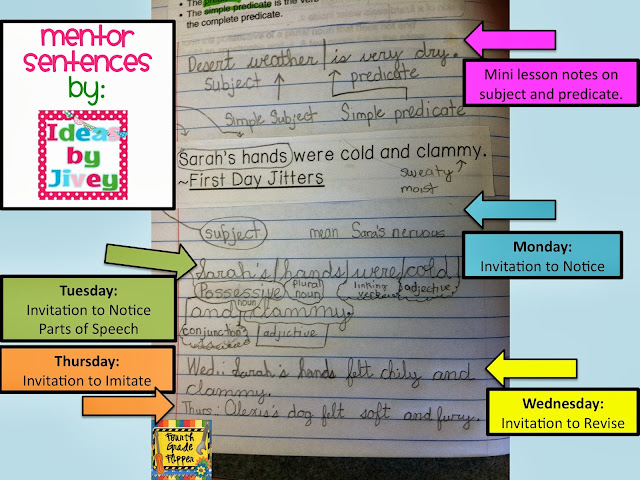 mentor
sentences
by:
Ideas
by
Jivey
• The simple predicate is the verb
the complete predicate.
Desert weather | is very dry.
subject predicate
Simple Subject Simple predicate
Mini lesson notes on
subject and predicate.
Sarah's hands were cold and clammy.
~First Day Jitters
sweaty
moist
subject mean Sara's nervous
Monday:
Invitation to Notice
Sarah's hands were cold
Possessive noun plural noun linking verb adjective
and clammy.
conjunction adjictive
Tuesday:
Invitation to Notice
Parts of Speech
Wed.: Sarah's hands felt chily and
clammy.
Thurs: Alexis's dog felt soft and furry.
Thursday:
Invitation to Imitate
Wednesday:
Invitation to Revise
Fourth
Grade
Flipper